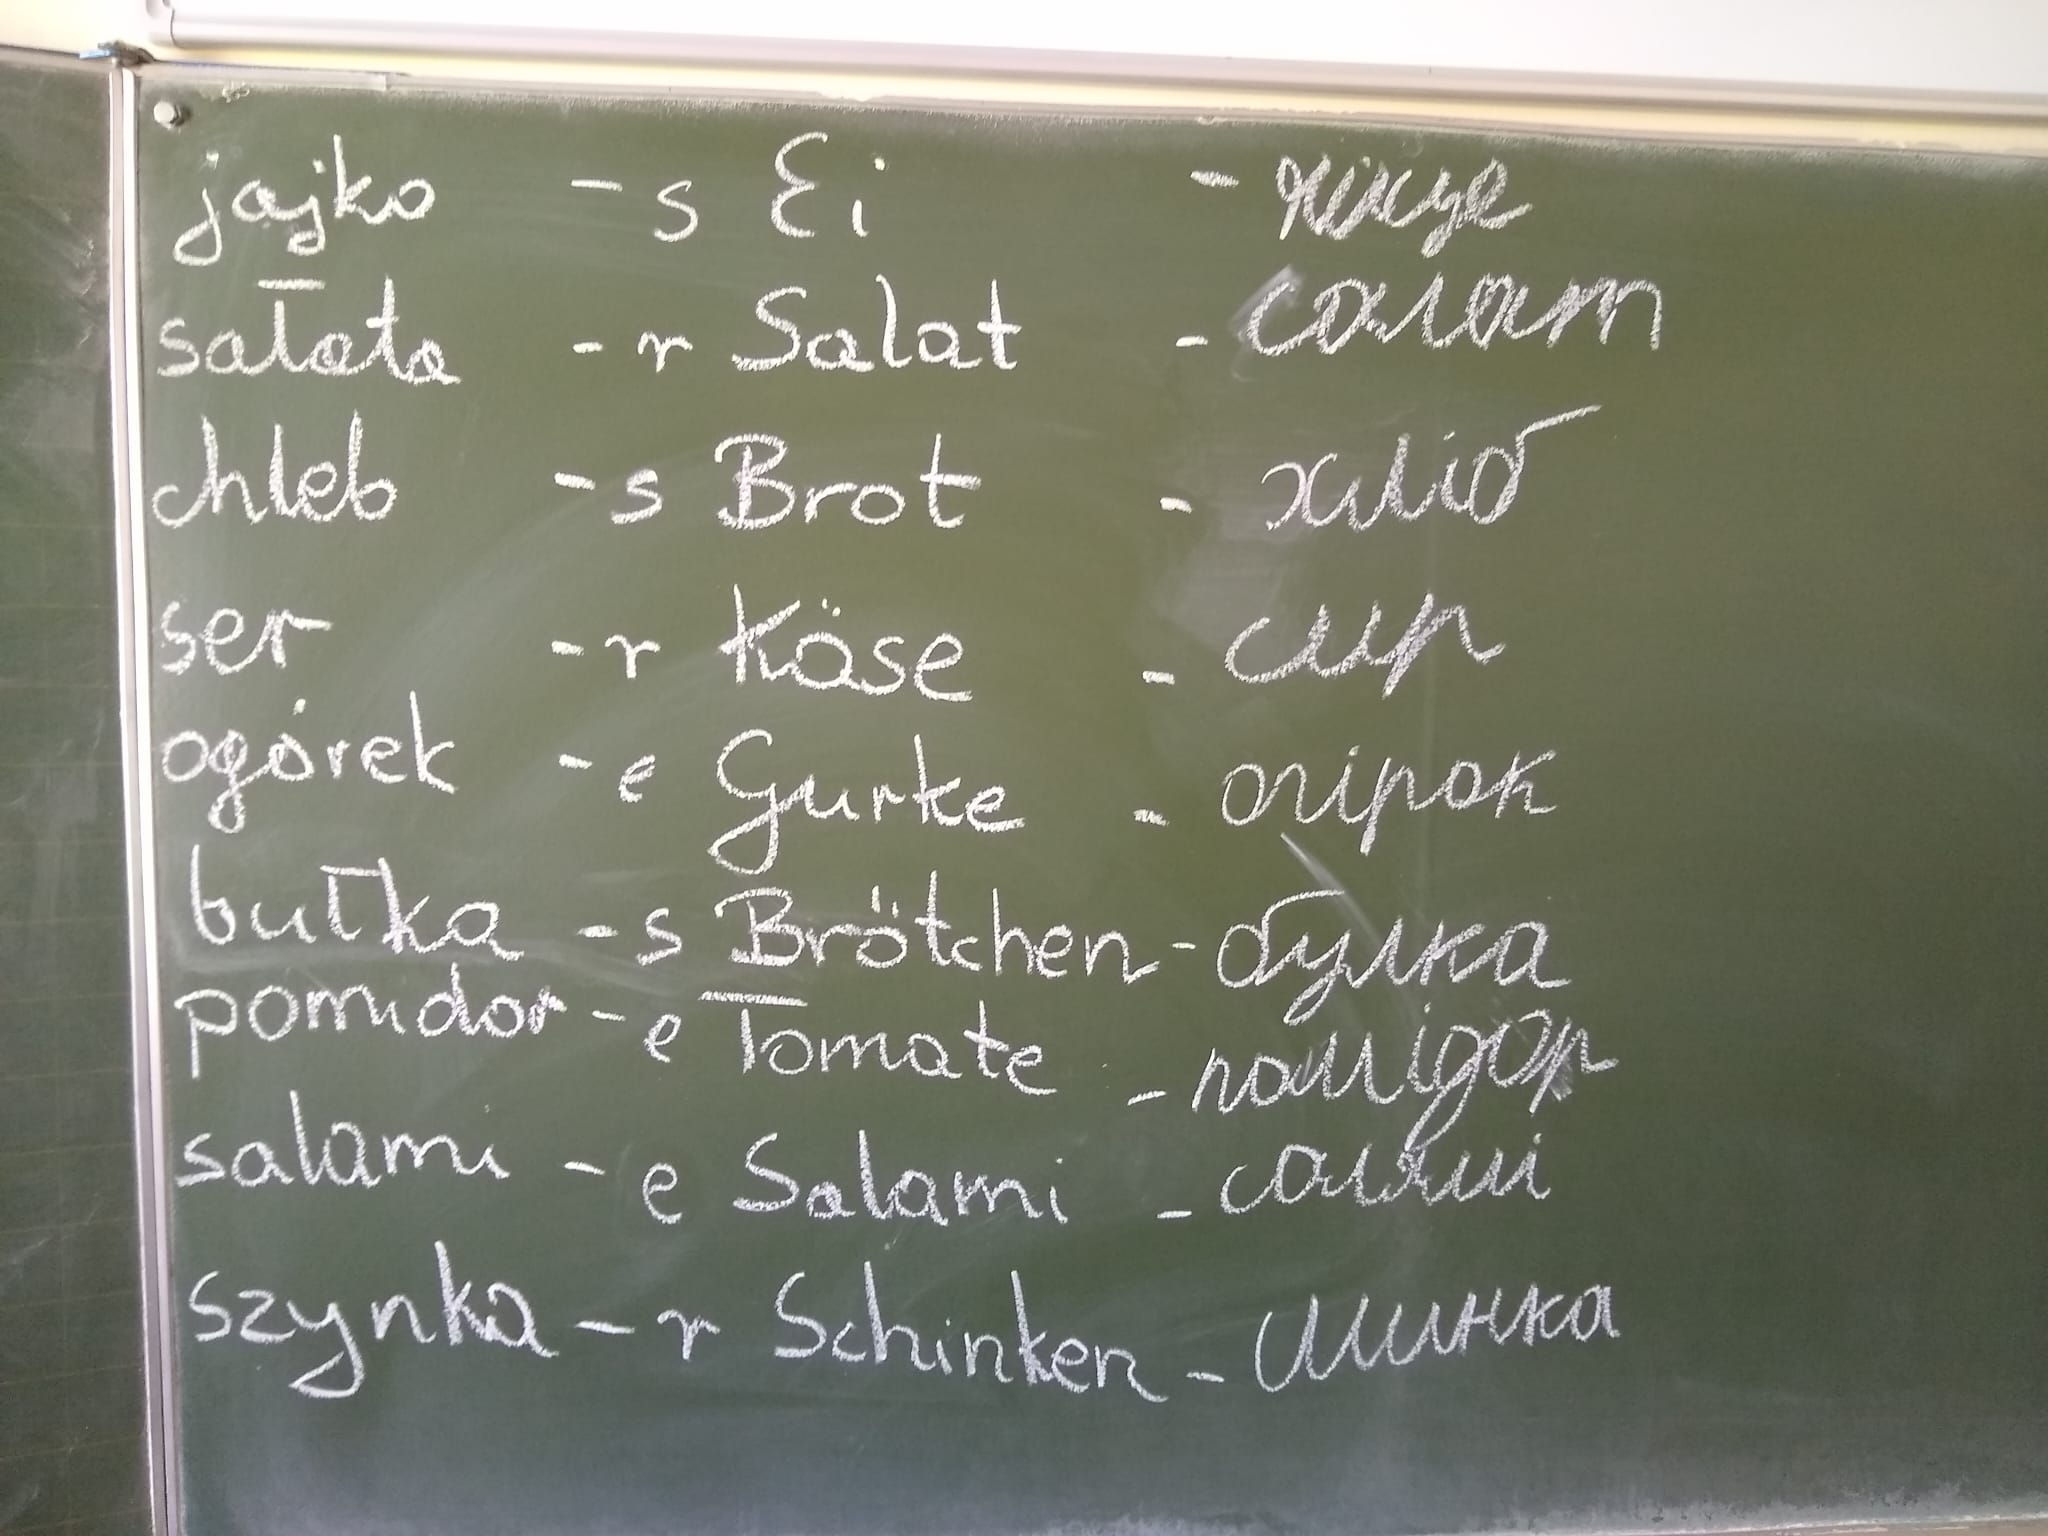 jajko - s Ei - яйце
sałata - r Salat - салат
chleb - s Brot - хліб
ser - r Käse - сир
ogórek - e Gurke - огірок
bułka - s Brötchen - булка
pomidor - e Tomate - помідор
salami - e Salami - салямі
szynka - r Schinken - шинка